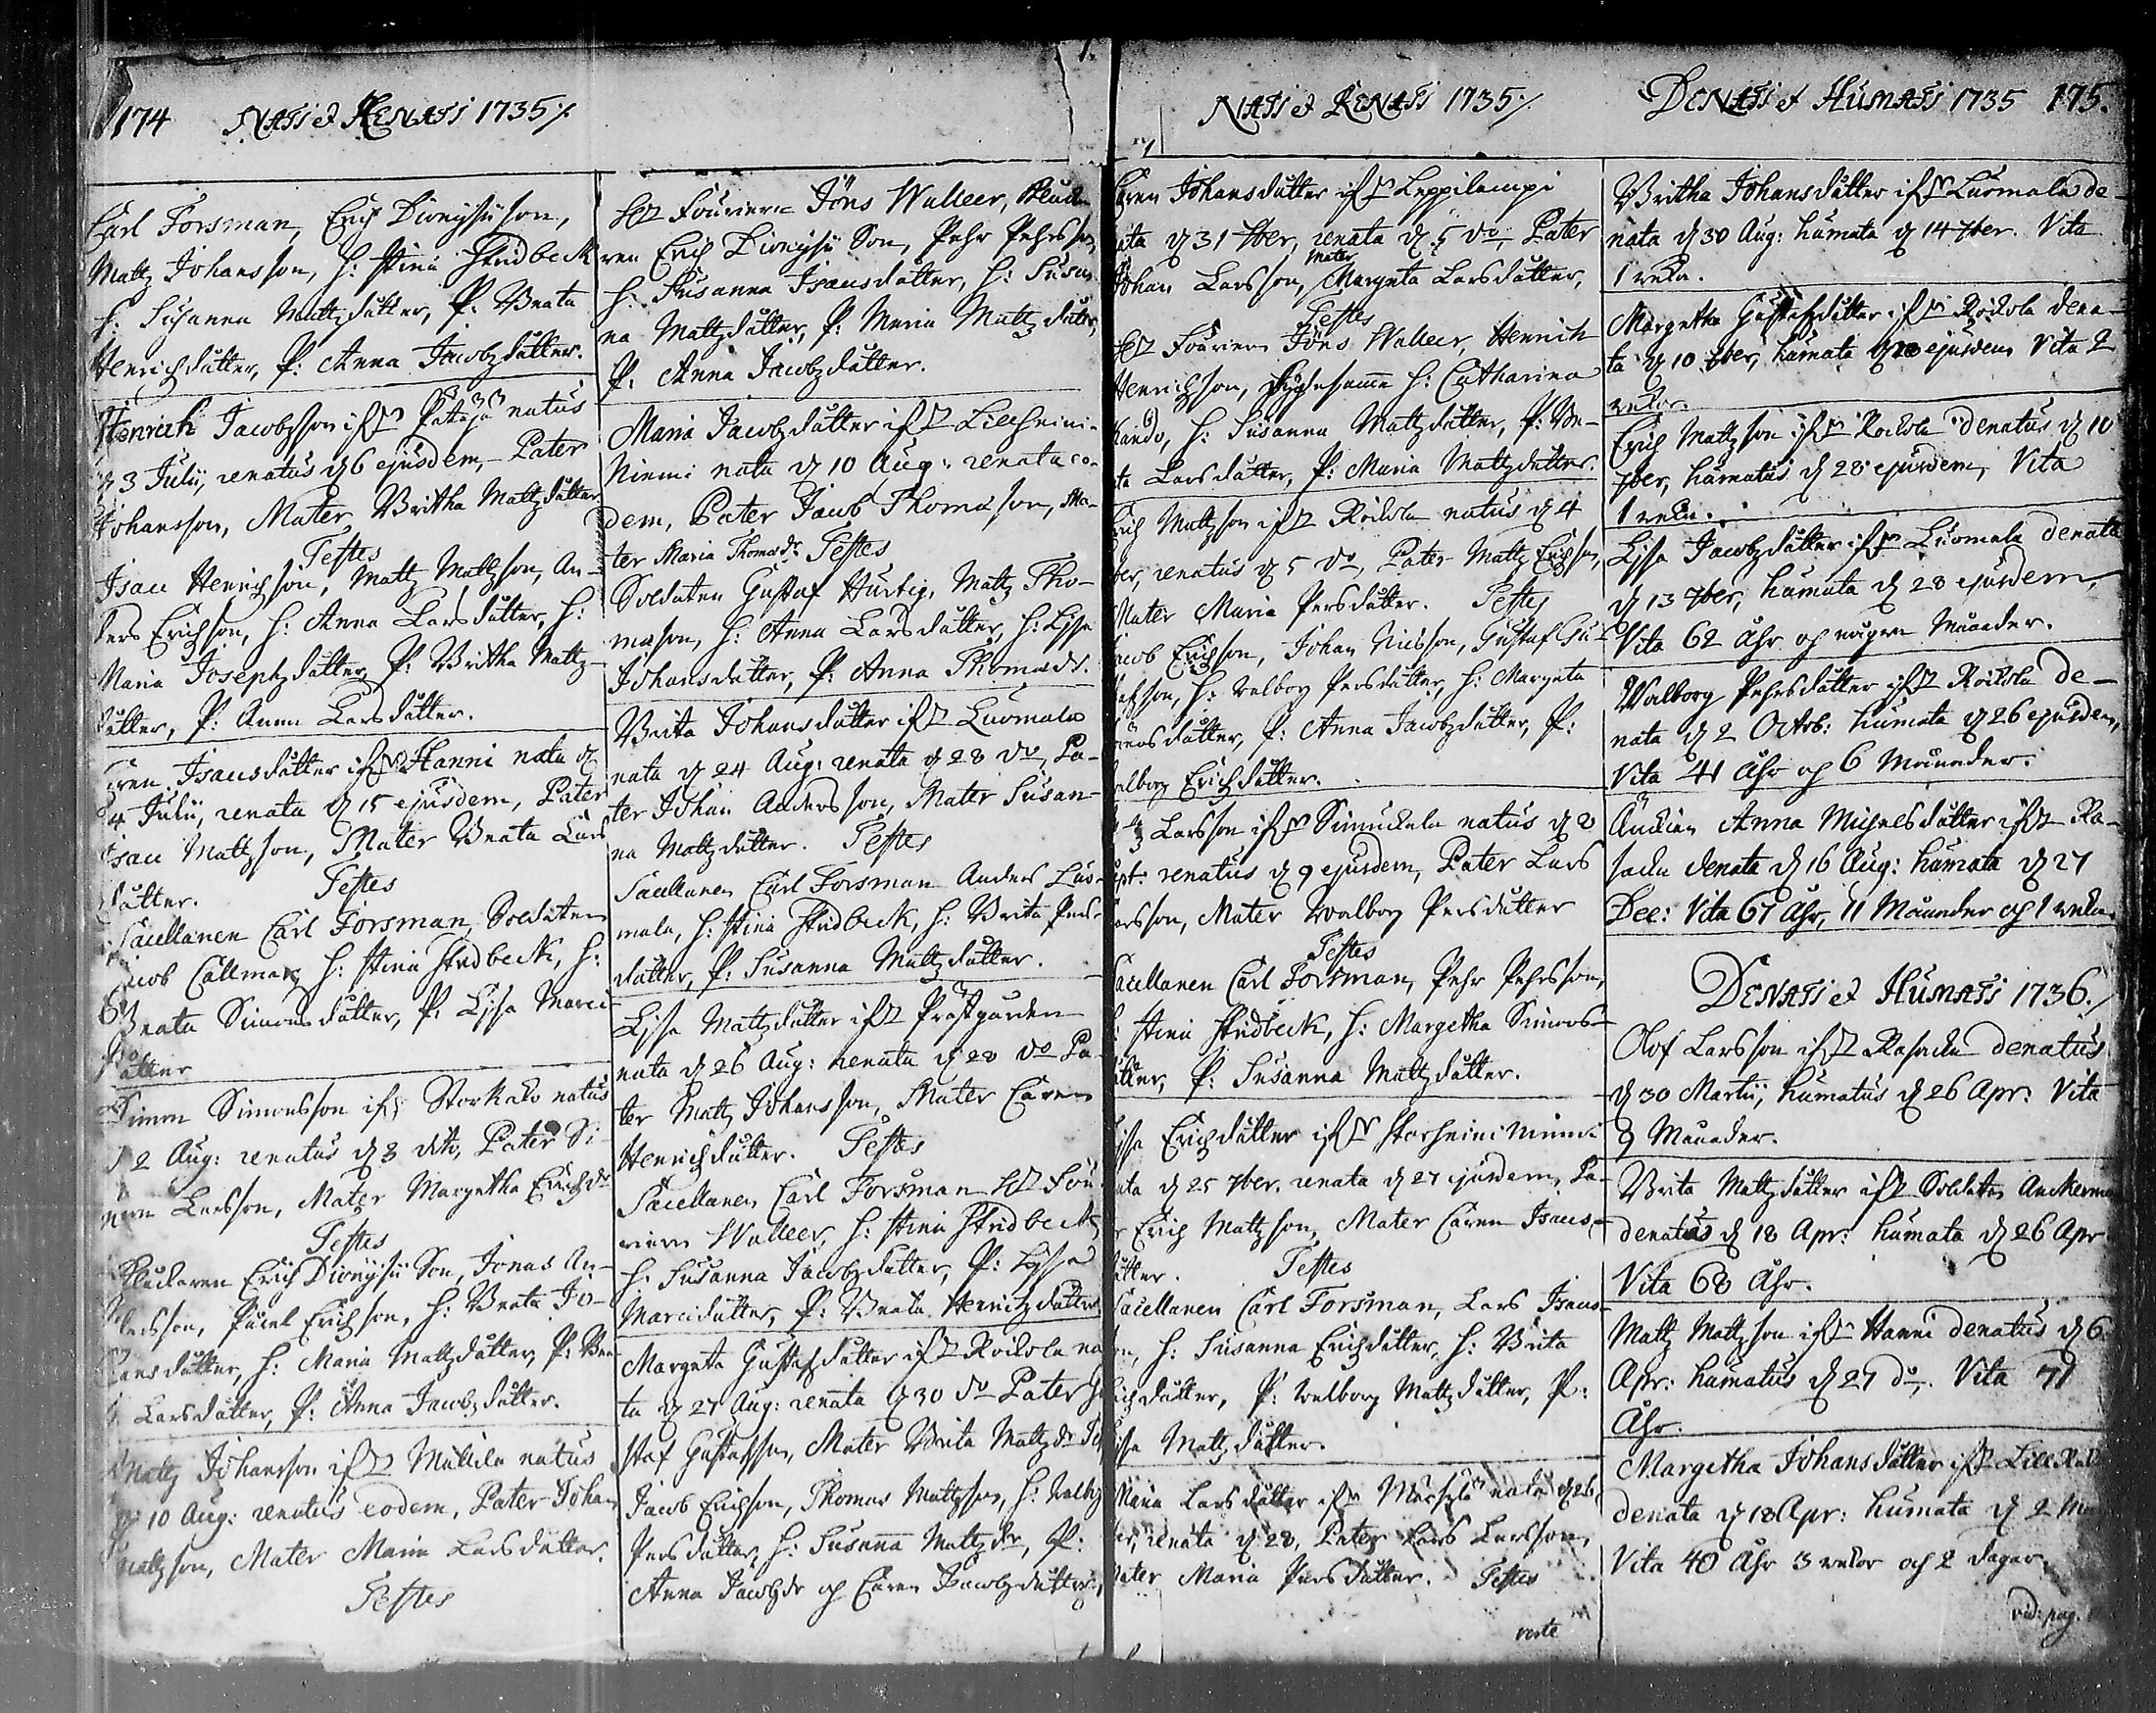 174 NATI et RENATI 1735 /.
Carl Forsman, Erich Dionysii son,
Matz Johansson, h: Stina Stridbeck
h: Susanna Mattzdåtter, P: Beata
Henrichdåtter, P: Anna Jacobzdåtter.
Henrich Jacobzson ifrån natus
d 3 Julii, renatus d 6 ejusdem, Pater
Johansson, Mater Britha Mattzdåtter
Testes
Isaac Henrichson, Mattz Mattzson, An-
ders Erichson, h: Anna Larsdåtter, h:
Maria Josephzdåtter, P: Britha Mattz-
dåtter, P: Anna Larsdåtter.
Isaacsdåtter ifrån Hanni nata d
4 Julii, renata d 15 ejusdem, Pater
Isaac Mattzson, Mater Beata Lars
dåtter. Testes
Sacellanen Carl Forsman, Soldaten
Jacob Callman, h: Stina Stridbeck, h:
Beata Simonsdåtter, P: Lisa Marci
dåtter
Simon Simonsson ifrån Storkalo natus
d 2 Aug: renatus d 3 dito, Pater Si-
mon Larsson, Mater Margetha Erichdr
Testes
Klåckaren Erich Dionysii Son, Jonas An-
dersson, Påwel Erichson, h: Beata Jo-
hansdåtter, h: Maria Mattzdåtter, P: Bea-
ta Larsdåtter, P: Anna Jacobzdåtter.
Mattz Johansson ifrån natus
d 10 Aug: renatus eodem, Pater Johan
Mattzson, Mater Maria Larsdåtter.
Testes
Hr Fourieren Jöns Walleer, Klåcka
ren Erich Dionysii Son, Pehr Pehrsson,
h: Susanna Isaacsdåtter, h: Susan-
na Mattzdåtter, P: Maria Mattzdåtter,
P: Anna Jacobzdåtter.
Maria Jacobzdåtter ifrån Lillheini-
niemi nata d 10 Aug: renata eo-
dem, Pater Jacob Thomason, Ma-
ter Maria Thomædr Testes
Soldaten Gustaf Hurtig, Mattz Tho-
mason, h: Anna Larsdåtter, h: Lisa
Johansdåtter, P: Anna Thomædr.
Brita Johansdåtter ifrån Luomala
nata d 24 Aug: renata d 28 do, Pa-
ter Johan Andersson, Mater Susan-
na Mattzdåtter. Testes
Sacellanen Carl Forsman Anders Luo-
mala, h: Stina Stridbeck, h: Brita Pers-
dåtter, P: Susanna Mattzdåtter.
Lisa Mattzdåtter ifrån Prästgården
nata d 26 Aug: renata d 28 do Pa-
ter Mattz Johansson, Mater Caren
Henrichdåtter. Testes
Sacellanen Carl Forsman Hr Fou-
rieren Walleer, h: Stina Stridbeck
h: Susanna Jacobzdåtter, P: Lissa
Marcidåtter, P: Beata Henrichdåtter
Margeta Gustafzdåtter ifrån Roikola na
ta d 27 Aug: renata d 30 do Pater Gu
staf Gustafsson, Mater Brita Mattzdr Te
Jacob Erichson, Thomas Mattzson, h: Walborg
Persdåtter, h: Susanna Mattzdr, P:
Anna Jacobzdr och Caren Jacobzdåtter
NATI et RENATI 1735 /.
Caren Johansdåtter ifrån Leppilampi
nata d 31 7ber, renata d 5 do, Pater
Mater
Johan Larsson, Margeta Larsdåtter,
Testes
Hr Fourieren Jöns Walleer, Henrich
Henrichson, h: Catharina
h: Susanna Mattzdåtter, P: Be-
ta Larsdåtter, P: Maria Mattzdåtter.
Erich Mattzson ifrån Roikola natus d 4
ber, renatus d 5 do, Pater Mattz Erichson,
Mater Maria Persdåtter. Testes
Jacob Erichson, Johan Nilsson, Gustaf Gu-
stafsson, h: Walborg Persdåtter, h: Margeta
dåtter, P: Anna Jacobzdåtter, P:
Walborg Erichdåtter.
Larsson ifrån Simuckala natus d 8
Sept: renatus d 9 ejusdem, Pater Lars
Larsson, Mater Walborg Persdåtter
Testes
Sacellanen Carl Forsman, Pehr Pehrsson,
h: Stina Stridbeck, h: Margetha Simons-
dåtter, P: Susanna Mattzdåtter.
Lissa Erichdåtter ifrån Storheininiemi
nata d 25 7ber. renata d 27 ejusdem, Pa-
ter Erich Mattzson, Mater Caren Isaacs-
dåtter. Testes
Sacellanen Carl Forsman, Lars Isaacs-
son, h: Susanna Erichdåtter, h: Brita
Erichdåtter, P: Walborg Mattzdåtter, P:
Lissa Mattzdåtter.
Maria Larsdåtter ifrån nata d 26
ber, renata d 28, Pater Lars Larsson,
Mater Maria Persdåtter. Testes
verte
DENATI et HUMATI 1735 175.
Britha Johansdåtter ifrån Luomala de-
nata d 30 Aug: humata d 14 7ber. Vita
1 veka.
Margetha Gustafzdåtter ifrån Roikola dena-
ta d 10 7ber, humata d 28 ejusdem Vita 2
vekor.
Erich Mattzson ifrån Roikola denatus d 10
7ber, humatus d 28 ejusdem, Vita
1 veka.
Lissa Jacobzdåtter ifrån Luomala denata
d 13 7ber, humata d 28 ejusdem,
Vita 62 åhr och någre månader.
Walborg Pehrsdåtter ifrån Roikola de-
nata d 2 Octob: humata d 26 ejusdem,
Vita 41 åhr och 6 månader.
Änckian Anna Michelsdåtter ifrån Ra-
sacka denata d 16 Aug: humata d 27
Dec: Vita 67 åhr, 11 månader och 1 veka.
DENATI et HUMATI 1736. /
Olof Larsson ifrån Rasacka denatus
d 30 Martii, humatus d 26 Apr: Vita
9 månader.
Brita Mattzdåtter ifrån Soldaten Anckerman
denatus d 18 Apr: humata d 26 Apr
Vita 68 åhr.
Mattz Mattzson ifrån Hanni denatus d 6
Apr: humatus d 27 do,. Vita 71
åhr.
Margetha Johansdåtter ifrån Lill
denata d 18 Apr: humata d 2 Mai
Vita 40 åhr 3 vekor och 2 dagar.
vid: pag.